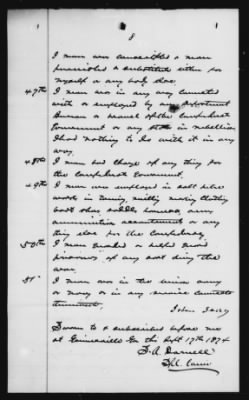 I never was conscripted & never
furnished a substitute either for
myself or any body else.
47th I never was in any way connected
with or employed by any department
Bureau or branch of the Confederate
Government or any state in rebellion
I had nothing to do with it in any
way.
48th I never had charge of any thing for
the Confederate Government.
49th I never was employed in salt petre
works in making
boots shoes saddles harness arms
ammunition accoutrements or any
thing else for the Confederacy.
50th I never
prisoners of any sort ding the
war.
51st I never was in the union army
or navy or in any service connected
John
Sworn to & subscribed before me
at Gainesville Ga this Sept 17th 1874